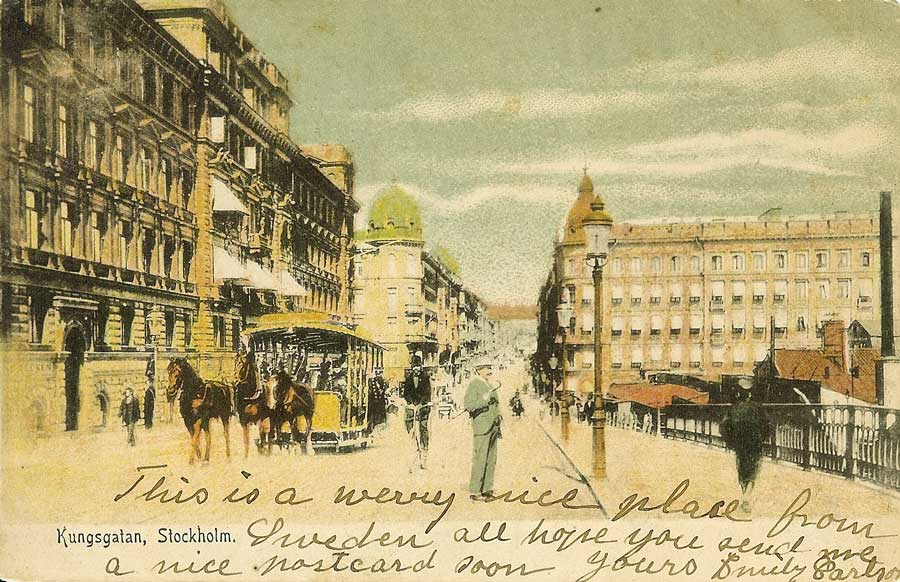 This is a werry nice place from
Kungsgatan, Stockholm.
Sweden all hope you send me
a nice postcard soon yours Emily Carlson